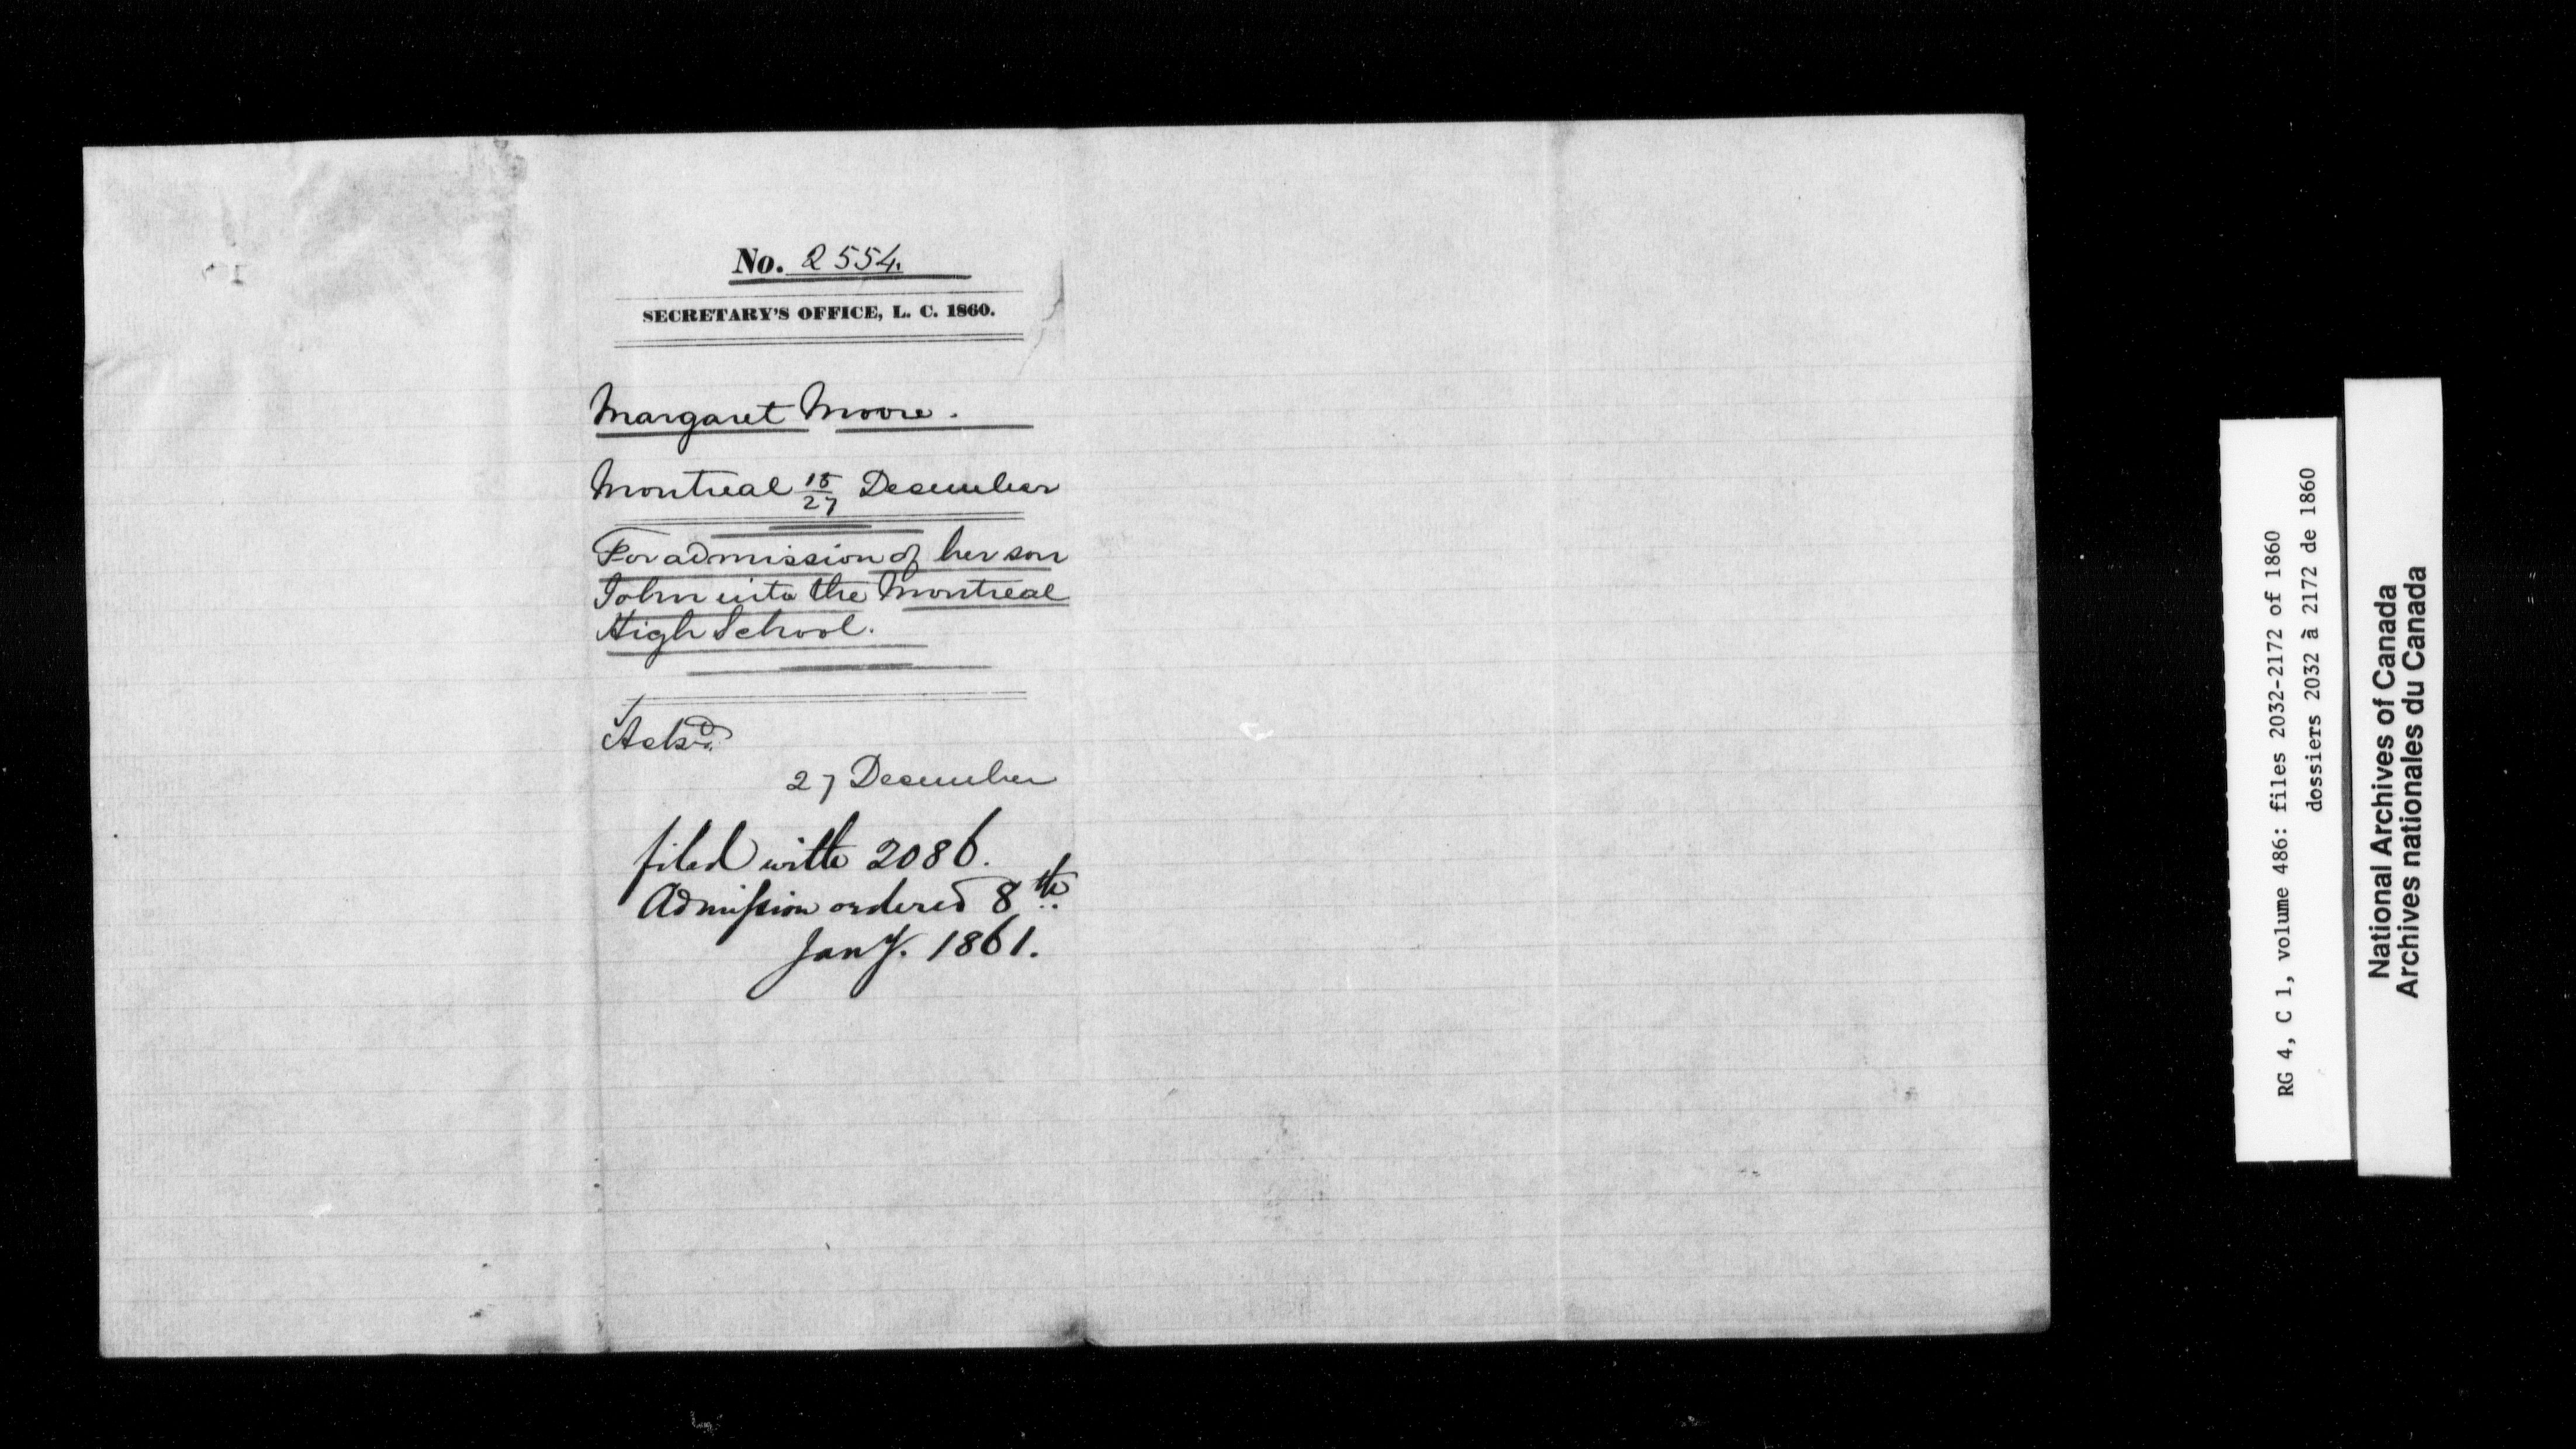 No. 2554.
SECRETARY'S OFFICE, L. C. 1860.
Margaret Moore.
Montreal 15/27 December
For admission of her son
John into the Montreal
High School.
Ackd.
27 December
filed with 2086.
Admission ordered 8th
Jany. 1861.
RG 4, C 1, volume 486: files 2032-2172 of 1860
dossiers 2032 à 2172 de 1860
National Archives of Canada
Archives nationales du Canada